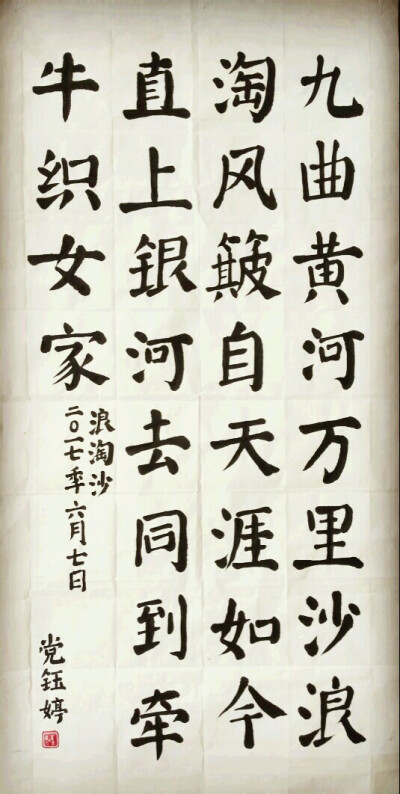 九曲黄河万里沙浪
淘风簸自天涯如今
直上银河去同到牵
牛织女家
浪淘沙
二〇一七季六月七日
党钰婷